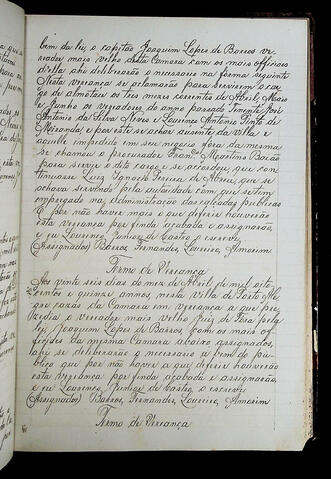 bem da lei o capitão Joaquim Lopes de Barros ve-
reador mais velho desta Camara com os mais officiaes
d'ella ahi deliberarão o necessario na forma seguinte
Nesta vereança se aclamarão para servirem o car-
go de almotacés os tres mezes correntes de Abril, Maio
e Junho os vereadores do anno passado Tenente José
Antonio da Silva Neves e Lourenço Antonio Pinto de
Miranda e por este se achar ausente da villa e
aquelle impedido em seu negocio fora da mesma
se chamou o procurador Francco Martins Baião
para servir o dito cargo e se acordou que con-
tinuasse Luiz Ignacio Pereira de Abreu que se
achava servindo pela autuidade com que se tem
empregado na administração das calçadas publicas
E por não haver mais o que deferir houverão
esta vereança por finda acabada e assignarão
e eu Lourenço Junior de Castro o escrevi
(Assignados) Barros, Fernandes, Loureiro, Amorim
Termo de Vereança
Aos vinte seis dias do mez de Abril de mil oito
centos e quinze annos, nesta Villa de Porto Ale-
gre cazas da Camara em vereança a que pre-
zedio o vereador mais velho Juiz de Fora pela
lei Joaquim Lopes de Barros com os mais of-
ficiaes da mesma Camara abaixo assignados,
ahi se deliberarão o necessario a bem do pu-
blico que por não haver a que deferir houverão
esta vereança por finda acabada e assignarão
e eu Lourenço Junior de Castro o escrevi
(Assignados) Barros, Fernandes, Loureiro, Amorim
Termo de Vereança